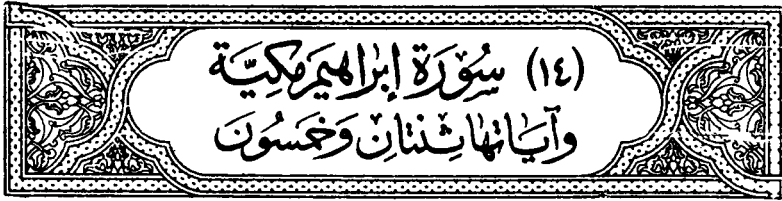 (١٤) سُوْرَة إِبْرَاهِيْمَ مَكِيَّة
وَآيَاتُهَا ثِنْتَانِ وَخَمْسُونَ